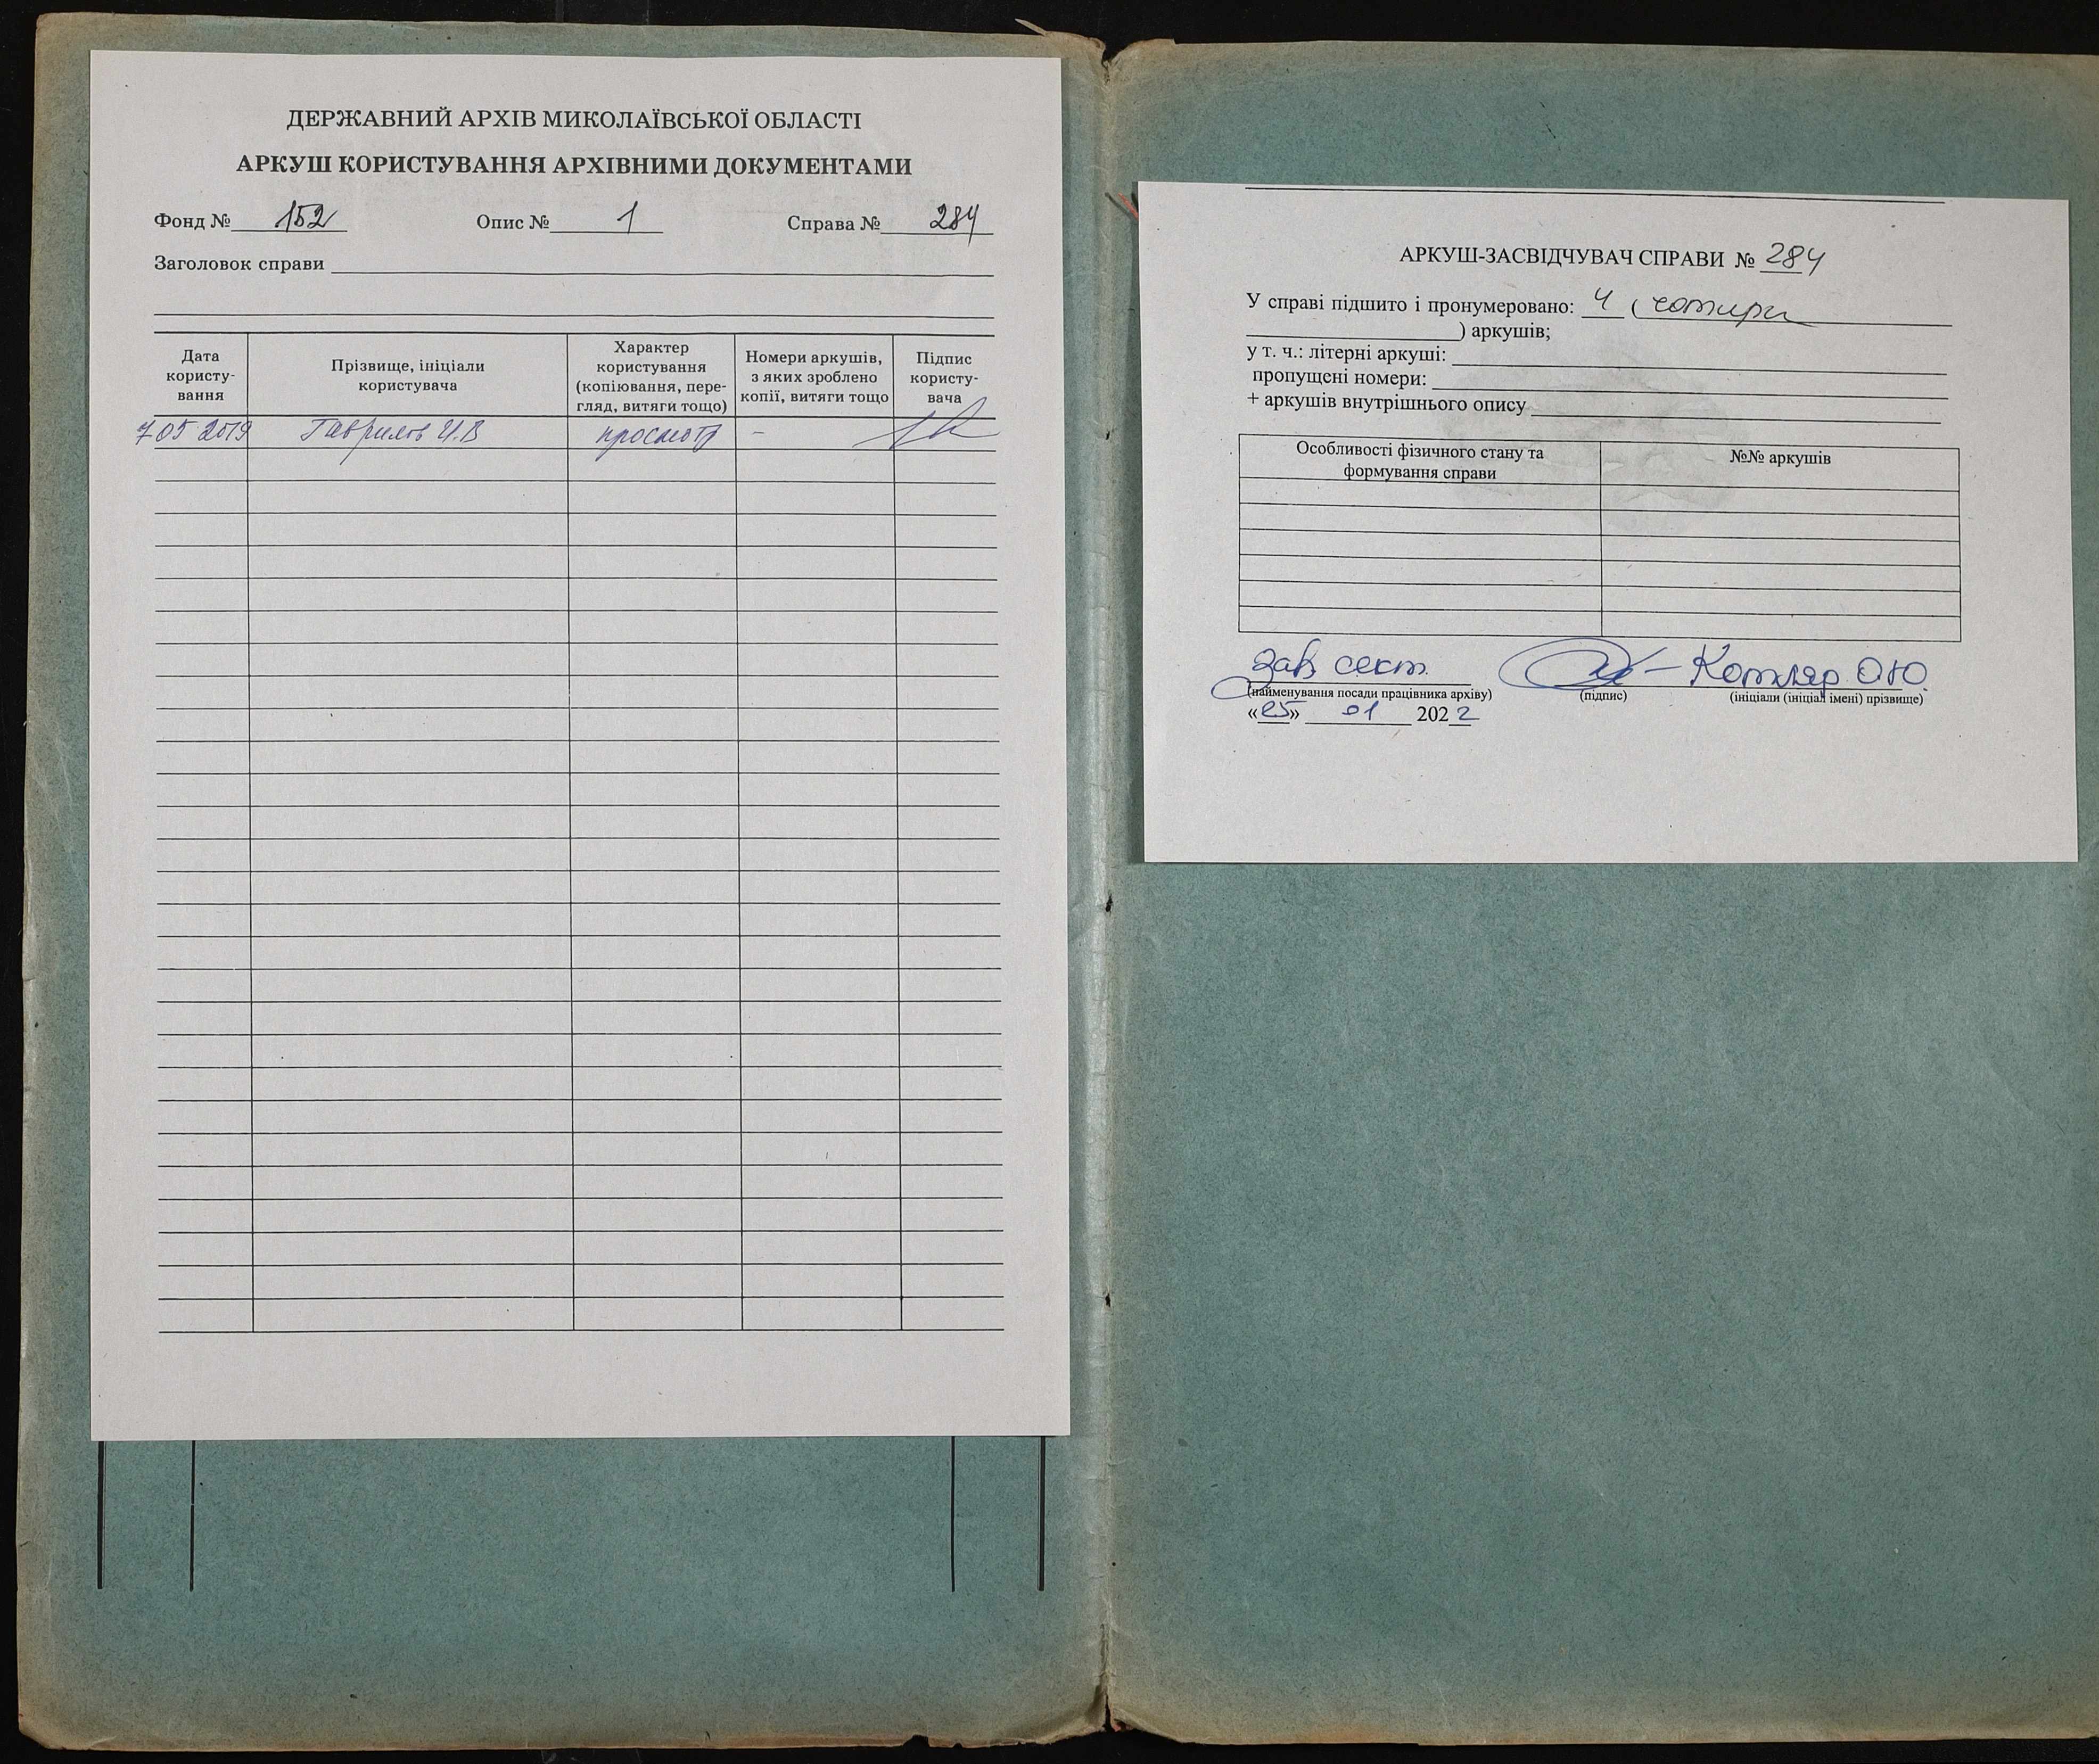 ДЕРЖАВНИЙ АРХІВ МИКОЛАЇВСЬКОЇ ОБЛАСТІ
АРКУШ КОРИСТУВАННЯ АРХІВНИМИ ДОКУМЕНТАМИ
Фонд № 152 Опис № 1 Справа № 284
Заголовок справи
Дата користу-вання
Прізвище, ініціали користувача
Характер користування (копіювання, пере-гляд, витяги тощо)
Номери аркушів, з яких зроблено копії, витяги тощо
Підпис користу-вача
7 05 2019 Гаврилов И.В просмотр –
АРКУШ-ЗАСВІДЧУВАЧ СПРАВИ № 284
У справі підшито і пронумеровано: 4 ( чотири
) аркушів;
у т. ч.: літерні аркуші:
пропущені номери:
+ аркушів внутрішнього опису
Особливості фізичного стану та формування справи
№№ аркушів
Зав. сект. Котляр О.Ю.
(найменування посади працівника архіву) (підпис) (ініціали (ініціал імені) прізвище)
«25» 01 2022